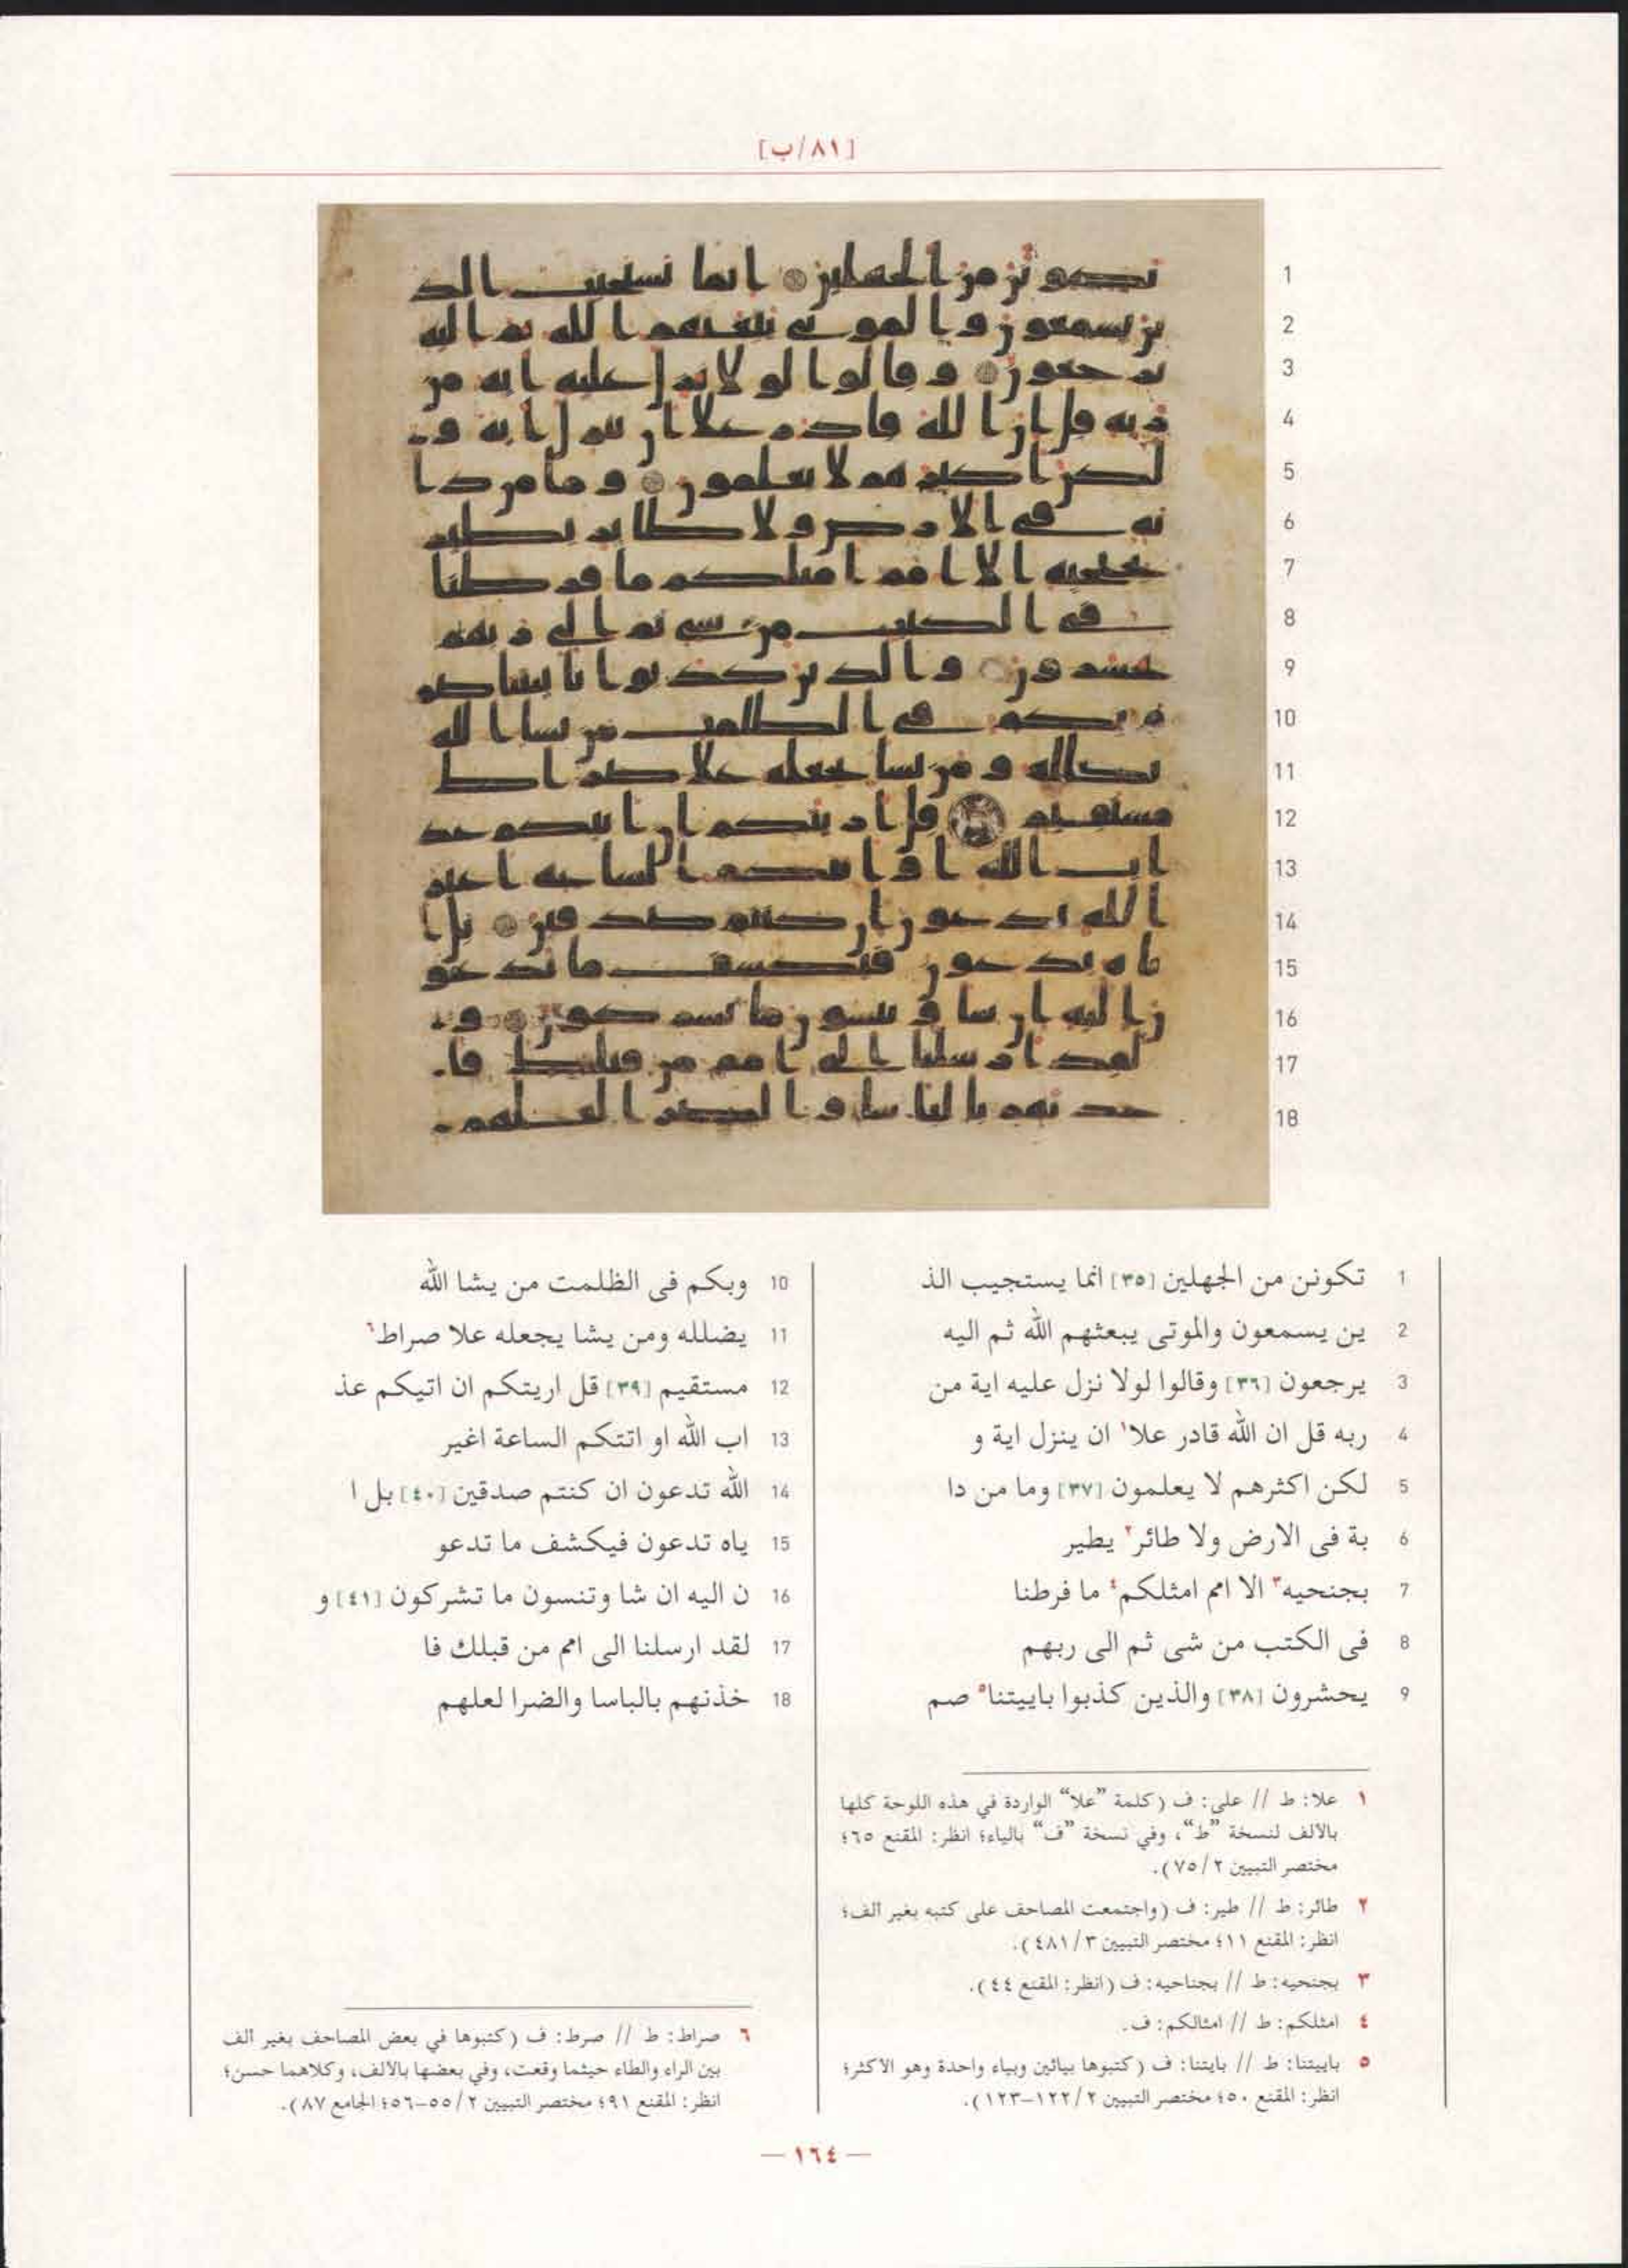 [٨١/ب]
1 تكونن من الجهلين [٣٥] انما يستجيب الذ
2 ين يسمعون والموتى يبعثهم الله ثم اليه
3 يرجعون [٣٦] وقالوا لولا نزل عليه اية من
4 ربه قل ان الله قادر علا١ ان ينزل اية و
5 لكن اكثرهم لا يعلمون [٣٧] وما من دا
6 بة فى الارض ولا طائر٢ يطير
7 بجنحيه٣ الا امم امثلكم٤ ما فرطنا
8 فى الكتب من شى ثم الى ربهم
9 يحشرون [٣٨] والذين كذبوا باييتنا٥ صم
10 وبكم فى الظلمت من يشا الله
11 يضلله ومن يشا يجعله علا صراط٦
12 مستقيم [٣٩] قل اريتكم ان اتيكم عذ
13 اب الله او اتتكم الساعة اغير
14 الله تدعون ان كنتم صدقين [٤٠] بل ا
15 ياه تدعون فيكشف ما تدعو
16 ن اليه ان شا وتنسون ما تشركون [٤١] و
17 لقد ارسلنا الى امم من قبلك فا
18 خذنهم بالباسا والضرا لعلهم
١ علا: ط // على: ف (كلمة "علا" الواردة في هذه اللوحة كلها
بالألف لنسخة "ط"، وفي نسخة "ف" بالياء؛ انظر: المقنع ٦٥؛
مختصر التبيين ٢/ ٧٥).
٢ طائر: ط // طير: ف (واجتمعت المصاحف على كتبه بغير الف؛
انظر: المقنع ١١؛ مختصر التبيين ٣/ ٤٨١).
٣ بجنحيه: ط // بجناحيه: ف (انظر: المقنع ٤٤).
٤ امثلكم: ط // امثالكم: ف.
٥ باييتنا: ط // بايتنا: ف (كتبوها بيائين وبياء واحدة وهو الأكثر؛
انظر: المقنع ٥٠؛ مختصر التبيين ٢/ ١٢٢–١٢٣).
٦ صراط: ط // صرط: ف (كتبوها في بعض المصاحف بغير الف
بين الراء والطاء حيثما وقعت، وفي بعضها بالألف، وكلاهما حسن؛
انظر: المقنع ٩١؛ مختصر التبيين ٢/ ٥٥–٥٦؛ الجامع ٨٧).
— ١٦٤ —